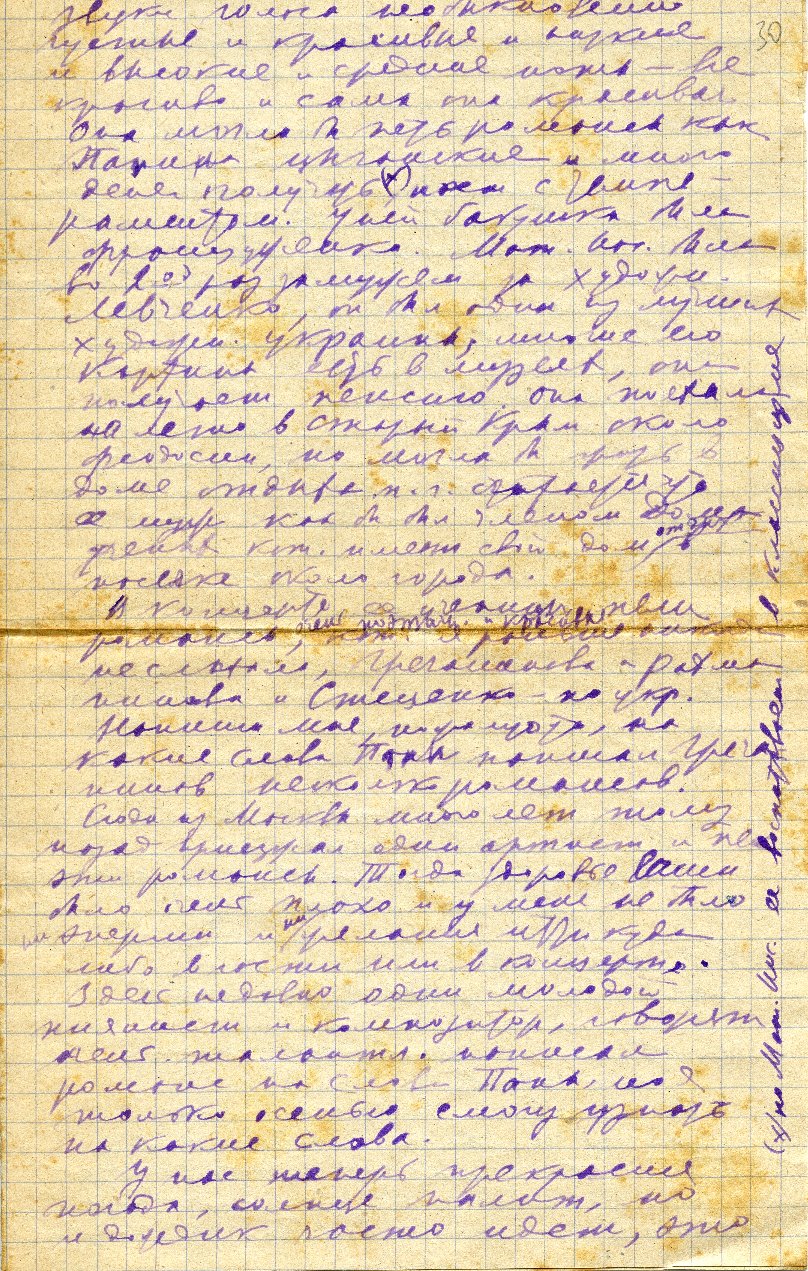 30
звуки голоса необыкновенно
густые и красивые и низкие
и высокие и средние ноты — все
красиво и сама она красивая.
Она могла б петь романсы как
Панина цыганские и много
денег получать, (х) поет с темпе-
раментом. У ней бабушка была
француженка. Мат. Ив. была
во 2ой раз замужем за худож.
Левченко, он был один из лучших
худож. Украины, многие его
картины есть в музеях, она
получает пенсию. Она поехала
на лето в Старый Крым около
Феодосии, но могла б жить в
доме отдыха п. г.
муж как б был членом Дома
ученых кот. имеет свой дом отдыха в
поселке около города.
В концерте ученицы пели
романсы, очень подходящ. и красивы
не слыхала, Гречанинова и Рахма
нинова и Стеценко — по укр.
Напиши мне, пожалуйста, на
какие слова Папы написал Греча
нинов несколько романсов.
Сюда из Москвы много лет тому
назад приезжал один артист и пел
эти романсы. Тогда здоровье Саши
было очень плохо и у меня не было
ни энергии и ни желания идти куда
либо в гости или в концерты.
Здесь недавно один молодой
пианист и композитор, говорят
очень талантл. написал
романс на слова Папы, но я
только осенью смогу узнать
на какие слова.
У нас теперь прекрасная
погода, солнце палит, но
и дождик часто идет, это
(х) но Мат. Ив. ее воспитывает в классицизме